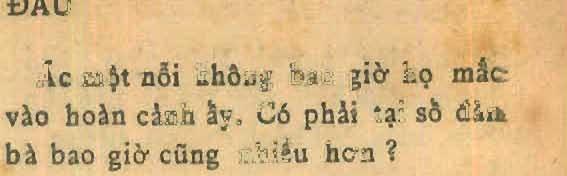 ĐẦU
Ác một nỗi không bao giờ họ mắc
vào hoàn cảnh ấy. Có phải tại số đàn
bà bao giờ cũng nhiều hơn ?